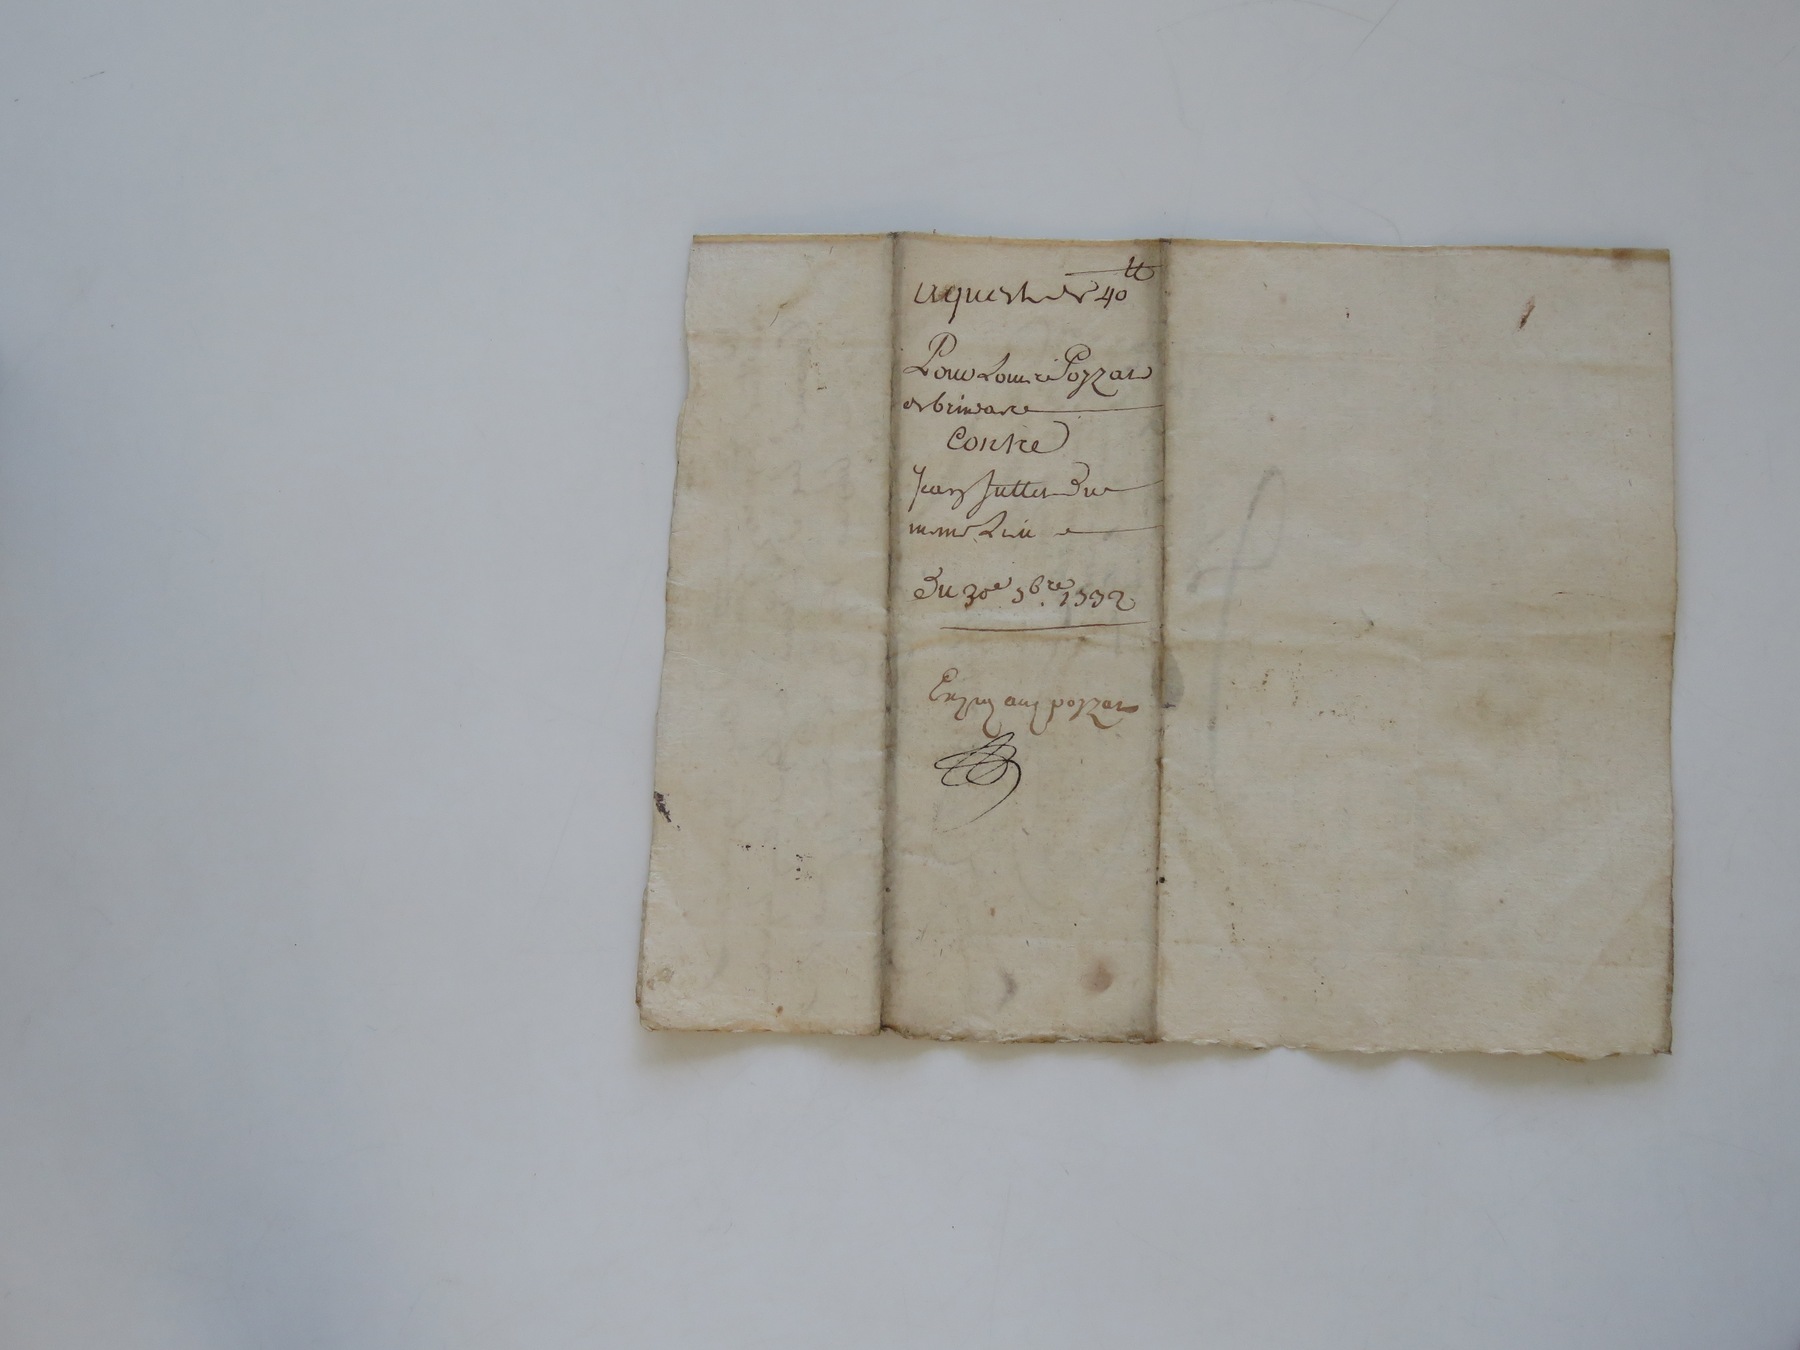 aquest de 40 tt
Pour Louis Pozzat
de brindare
Contre
Jean Juttet Du
meme Lieu
Du 30e 9bre 1772
pozzat